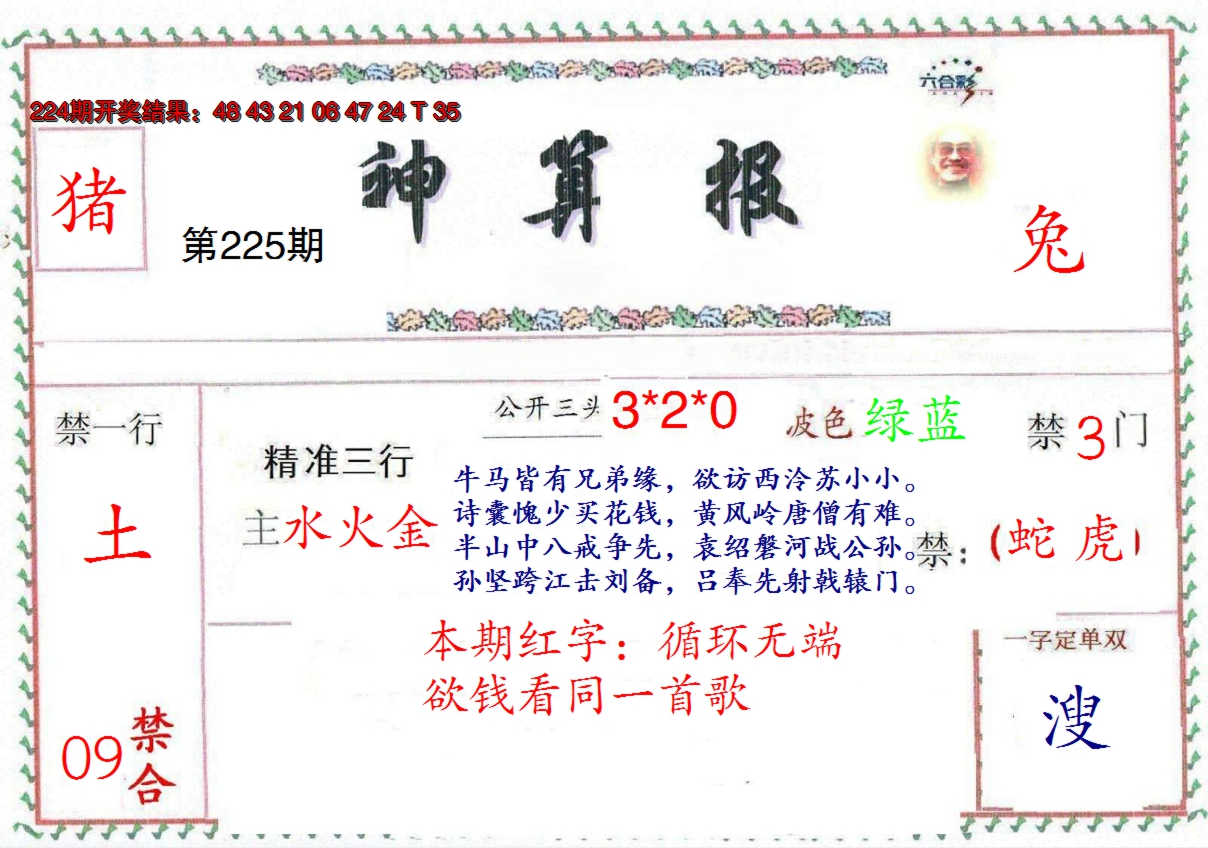 六合彩
224期开奖结果：48 43 21 06 47 24 T 35
神算报
猪
第225期
兔
公开三头 3*2*0
波色 绿蓝
禁3门
禁一行
土
精准三行
主水火金
牛马皆有兄弟缘，欲访西泠苏小小。
诗囊愧少买花钱，黄风岭唐僧有难。
半山中八戒争先，袁绍磐河战公孙。
孙坚跨江击刘备，吕奉先射戟辕门。
禁：（蛇 虎）
本期红字：循环无端
欲钱看同一首歌
一字定单双
溲
09禁合